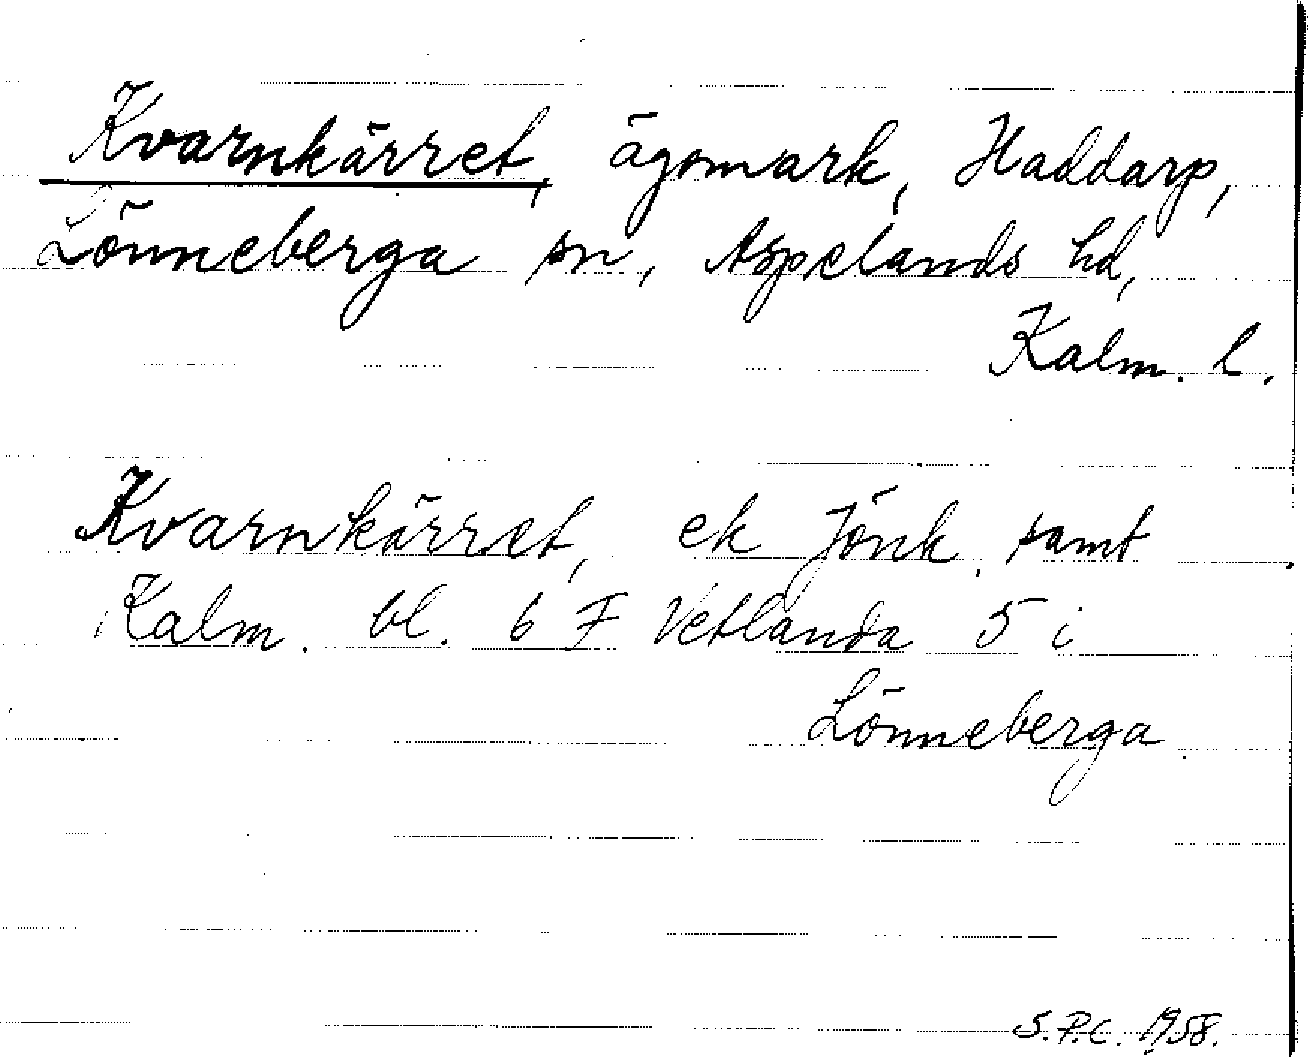 Kvarnkärret, ägomark, Haddarp,
Lönneberga sn, Aspelands hd,
Kalm. l.
Kvarnkärret, ek Jönk. samt
Kalm. bl. 6 F Vetlanda 5 i
Lönneberga.
S.P.C. 1958.